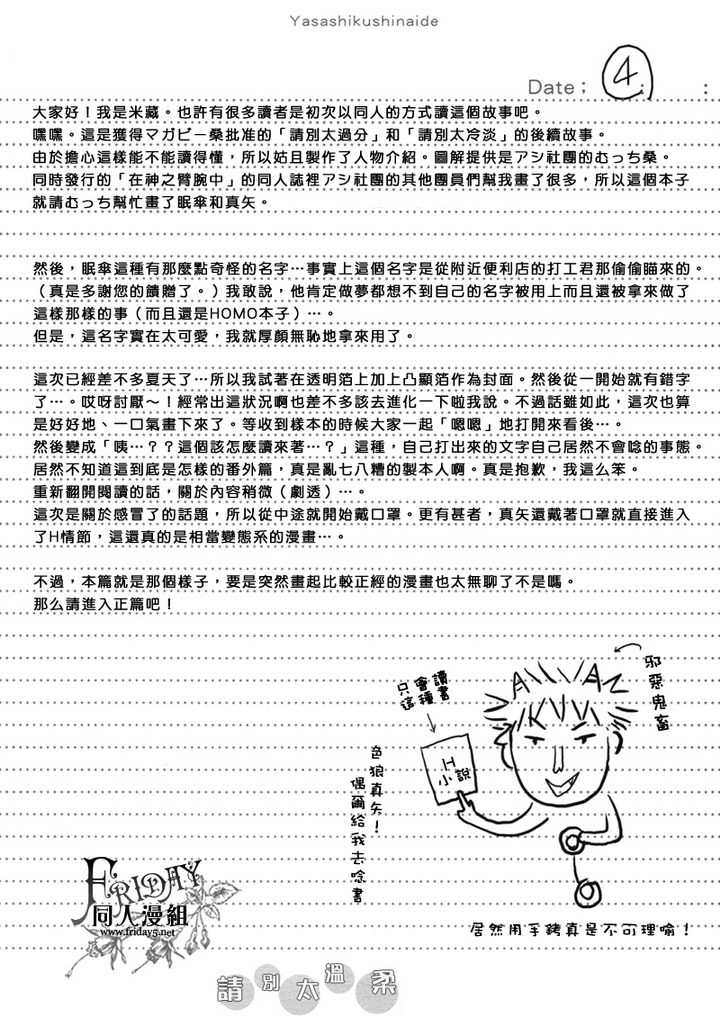 Yasashikushinaide
Date; 4 :
大家好！我是米藏。也許有很多讀者是初次以同人的方式讀這個故事吧。
嘿嘿。這是獲得マガビー桑批准的「請別太過分」和「請別太冷淡」的後續故事。
由於擔心這樣能不能讀得懂，所以姑且製作了人物介紹。圖解提供是アシ社團的むっち桑。
同時發行的「在神之臂腕中」的同人誌裡アシ社團的其他團員們幫我畫了很多，所以這個本子
就請むっち幫忙畫了眠傘和真矢。
然後，眠傘這種有那麼點奇怪的名字…事實上這個名字是從附近便利店的打工君那偷偷瞄來的。
（真是多謝您的饋贈了。）我敢說，他肯定做夢都想不到自己的名字被用上而且還被拿來做了
這樣那樣的事（而且還是HOMO本子）…。
但是，這名字實在太可愛，我就厚顏無恥地拿來用了。
這次已經差不多夏天了…所以我試著在透明箔上加上凸顯箔作為封面。然後從一開始就有錯字
了…。哎呀討厭～！經常出這狀況啊也差不多該去進化一下啦我說。不過話雖如此，這次也算
是好好地、一口氣畫下來了。等收到樣本的時候大家一起「嗯嗯」地打開來看後…。
然後變成「咦…？？這個該怎麼讀來著…？」這種，自己打出來的文字自己居然不會唸的事態。
居然不知道這到底是怎樣的番外篇，真是亂七八糟的製本人啊。真是抱歉，我這么笨。
重新翻開閱讀的話，關於內容稍微（劇透）…。
這次是關於感冒了的話題，所以從中途就開始戴口罩。更有甚者，真矢還戴著口罩就直接進入
了H情節，這還真的是相當變態系的漫畫…。
不過，本篇就是那個樣子，要是突然畫起比較正經的漫畫也太無聊了不是嗎。
那么請進入正篇吧！
邪惡鬼畜
只會讀
這種書
H
小說
色狼真矢！
偶爾給我去唸書
居然用手銬真是不可理喻！
FRIDAY
同人漫組
www.friday5.net
請別太溫柔